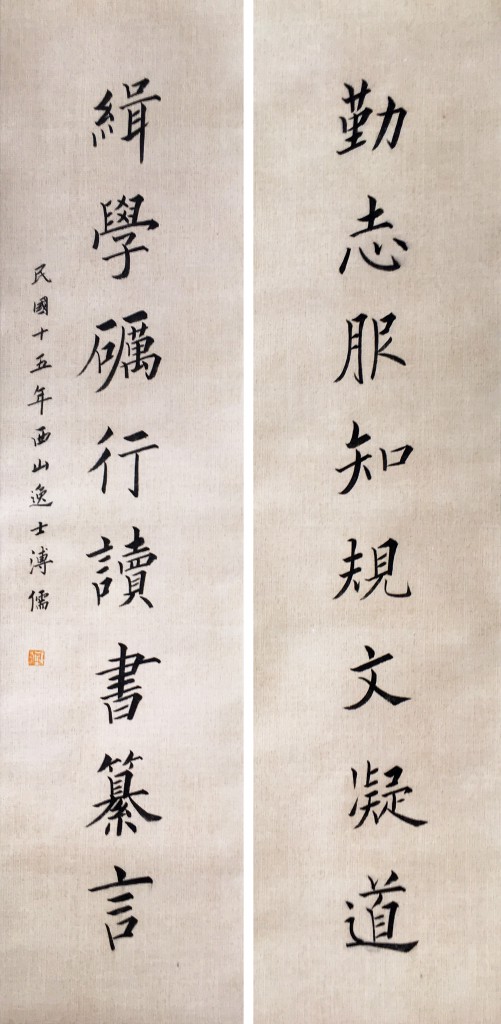 勤志服知規文凝道
緝學礪行讀書纂言
民國十五年西山逸士溥儒